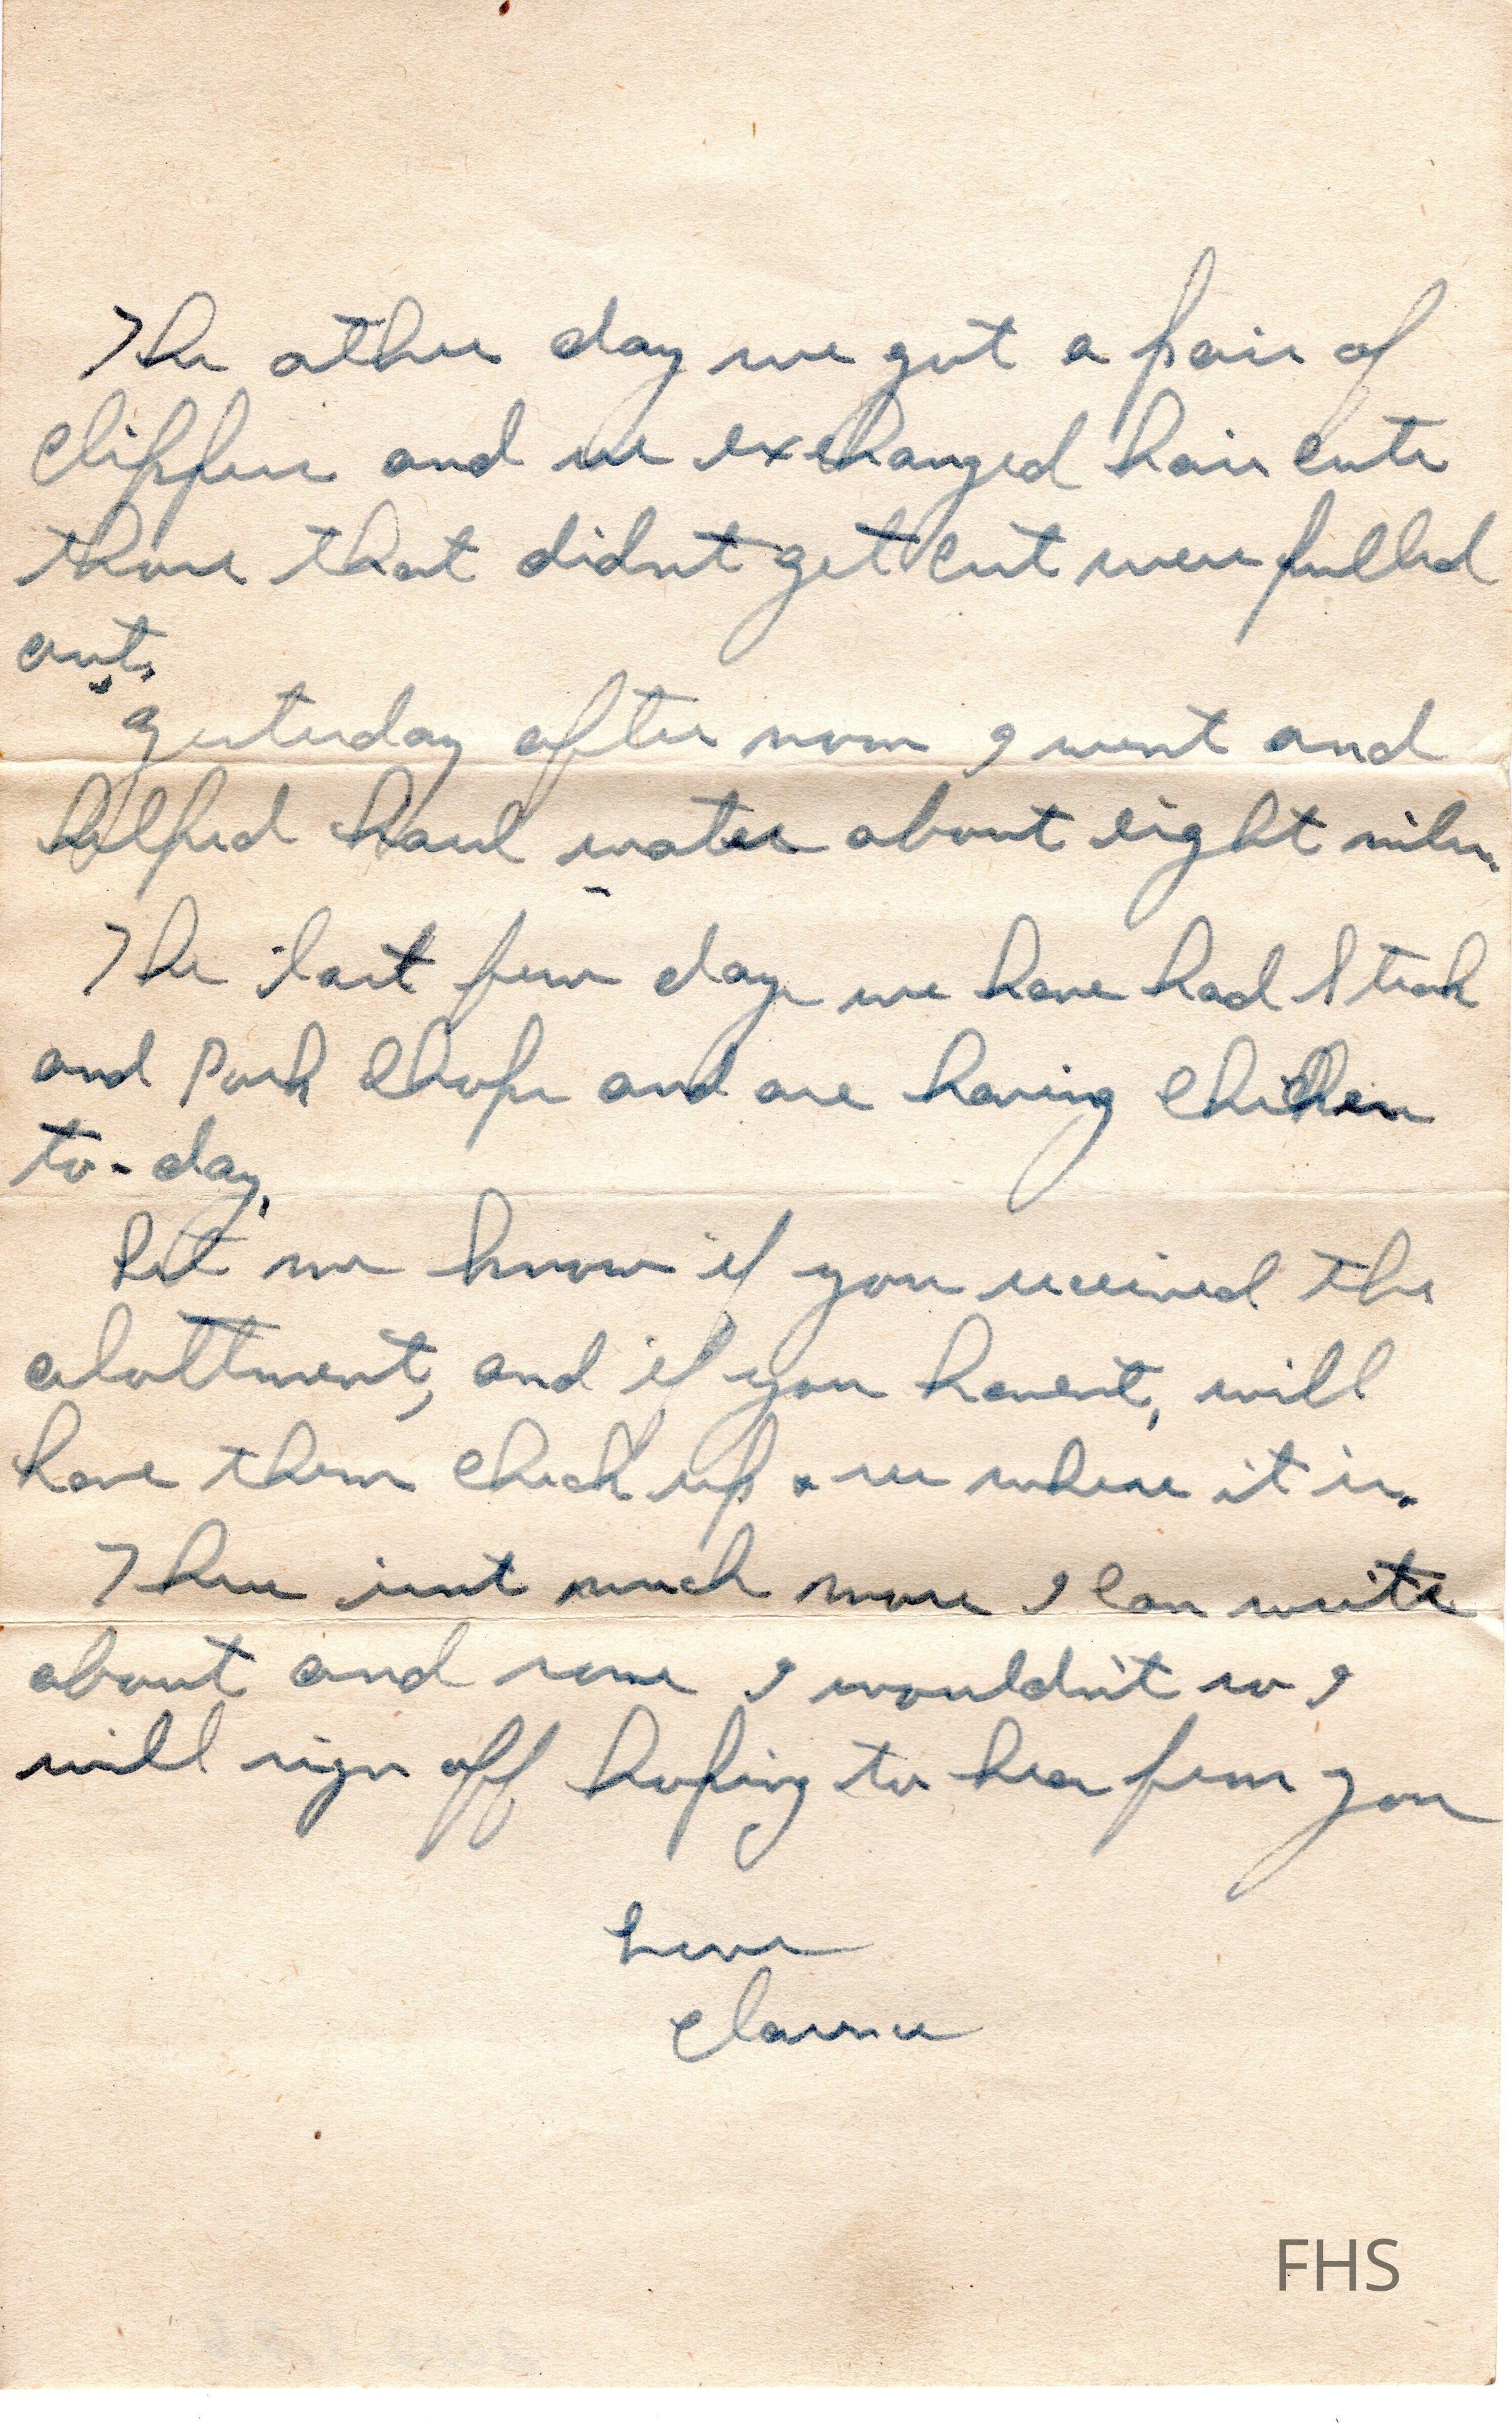 The other day we got a pair of
Clippers and we exchanged hair cuts
those that didnt get cut were pulled
out.
Yesterday after noon I went and
helped haul water about eight miles.
The last few days we have had Steak
and Pork Chops and are having Chicken
to-day.
Let me know if you received the
alottment, and if you havent, will
have them check up & see where it is.
There isnt much more I can write
about and some I wouldn't so I
will sign off hoping to hear from you
Love
Clarence
FHS